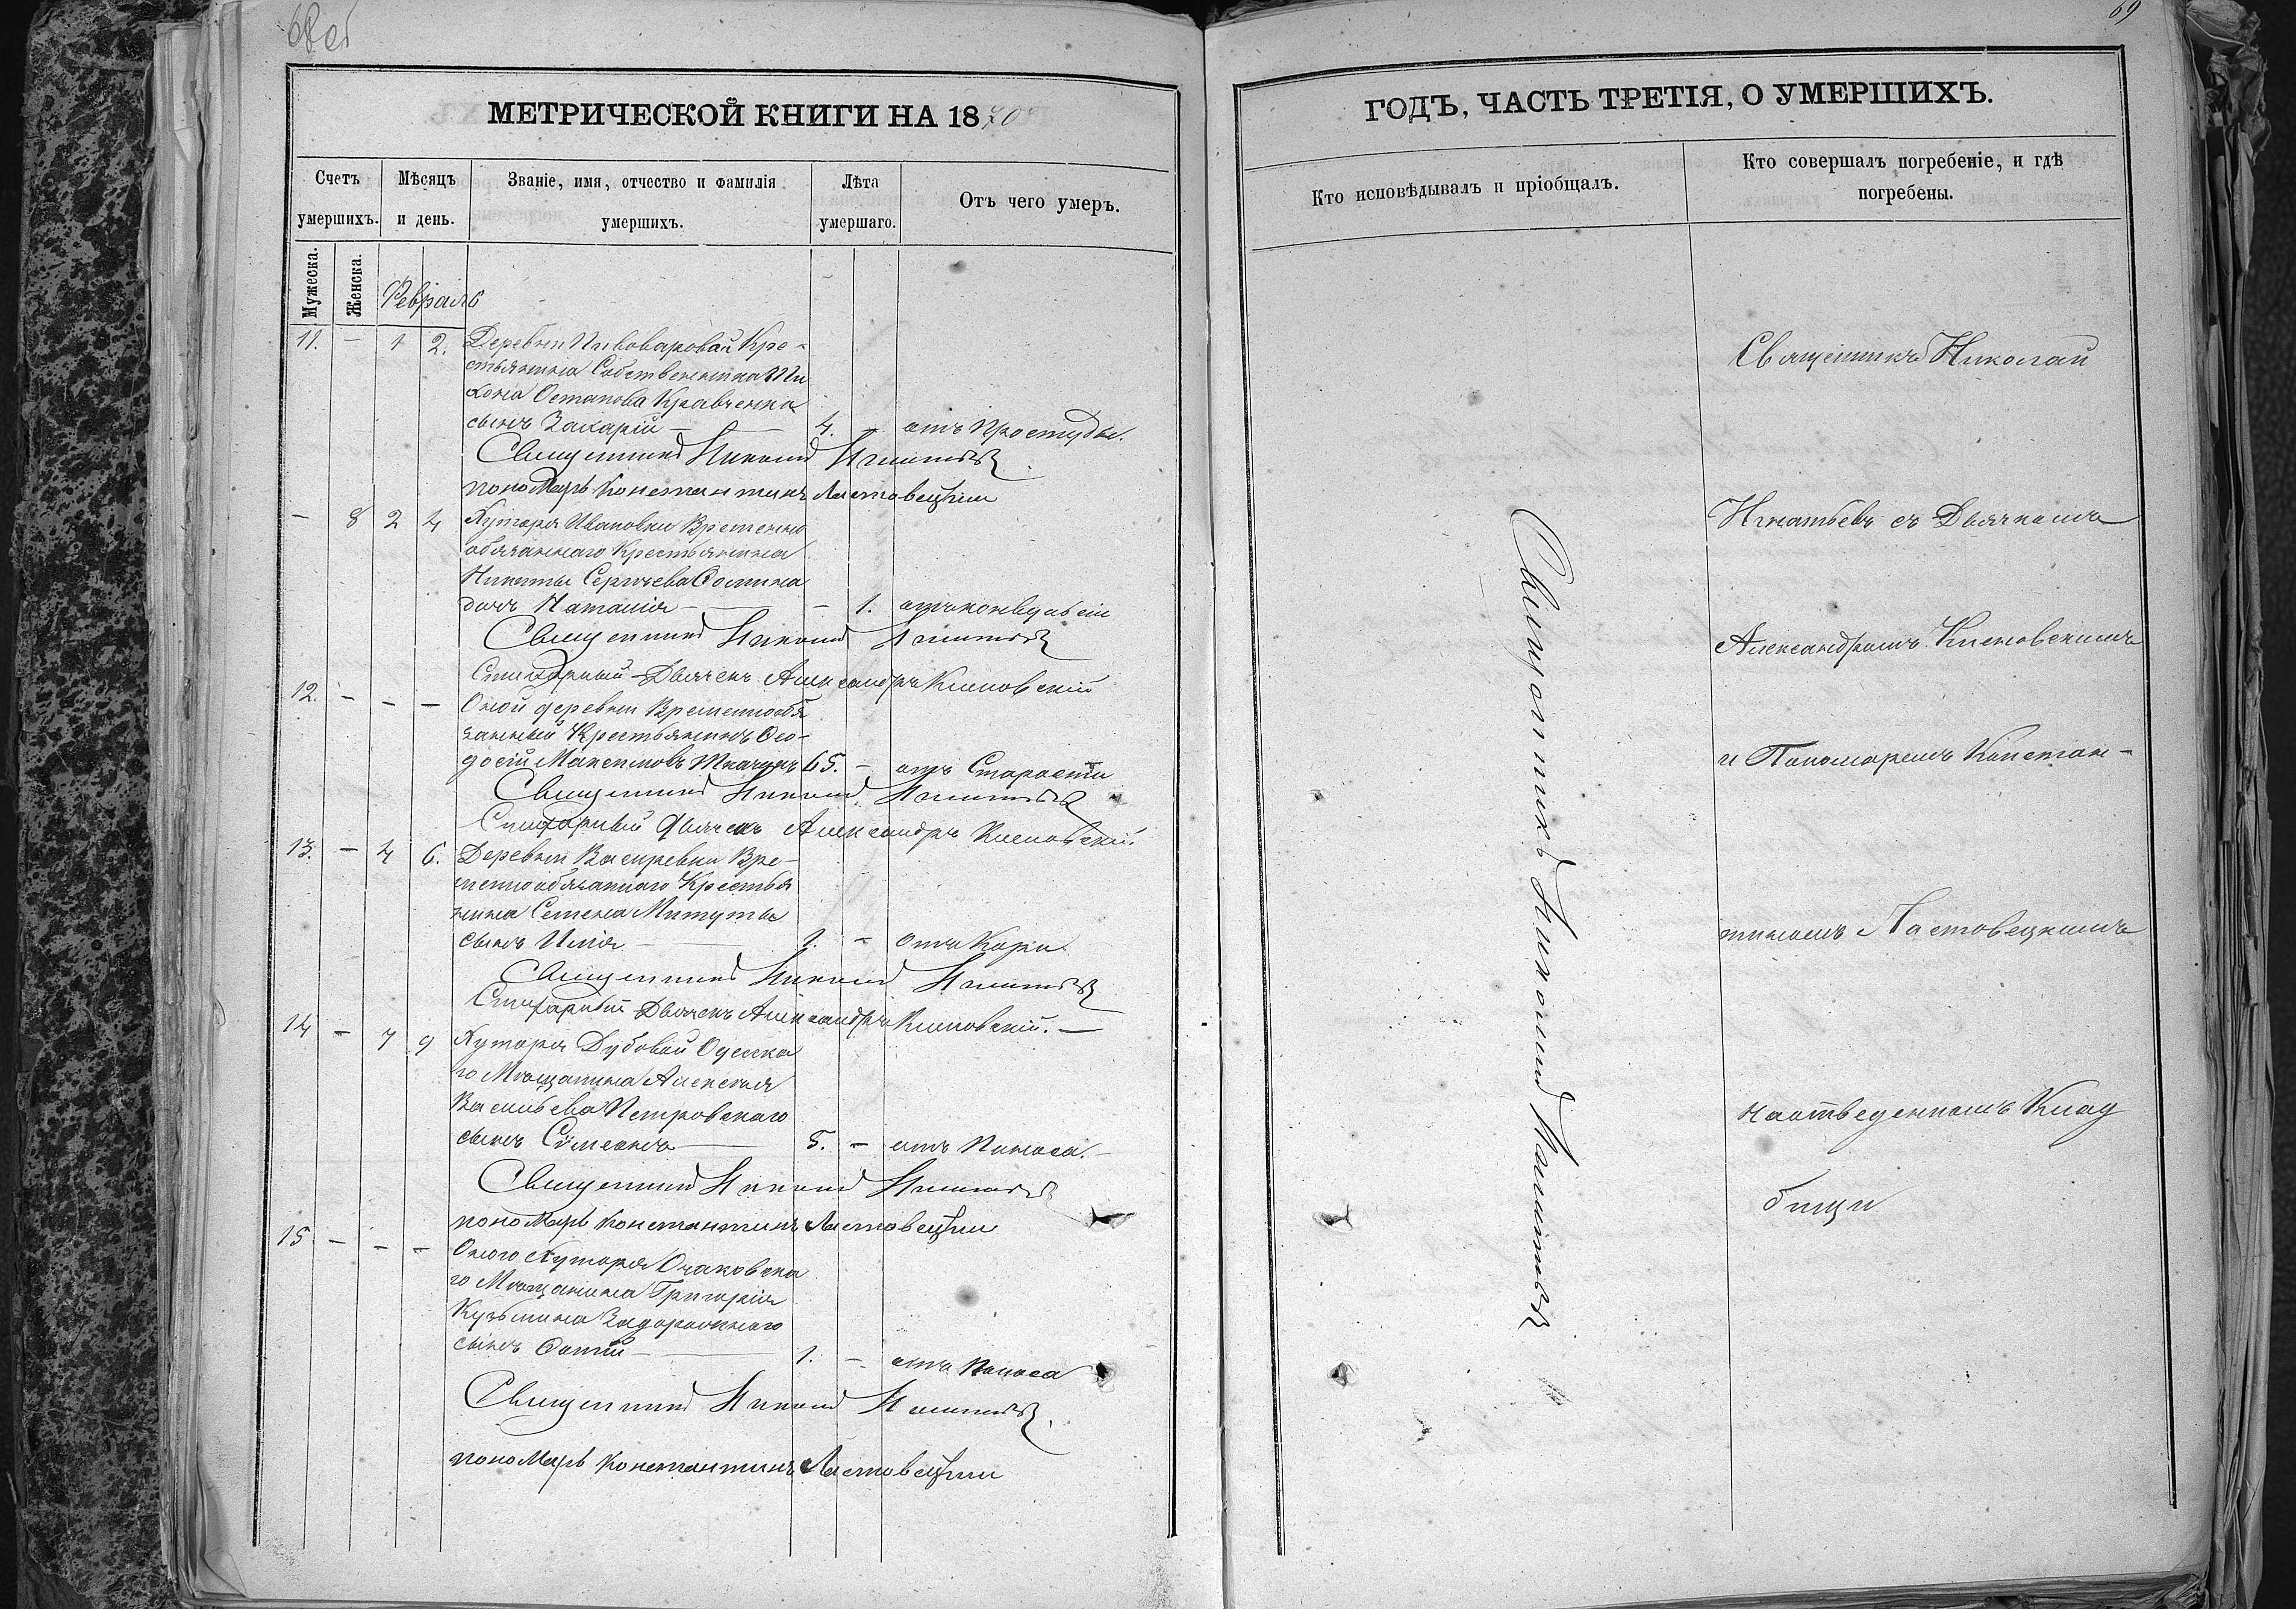 68 об
69
МЕТРИЧЕСКОЙ КНИГИ НА 1870
Счетъ умершихъ.
Мѣсяцъ и день.
Званіе, имя, отчество и фамилія умершихъ.
Лѣта умершаго.
Отъ чего умеръ.
Мужеска.
Женска.
Февраль
11. — 1 2. Деревни Пивоваровой Кре-
стьянина Собственника Ни
кона Остапова Кравченка
сынъ Захарій — 4. — отъ Простуды.
Священникъ Николай Игнатьевъ
пономарь Константинъ Ластовецкий
— 8 2 4 Хутора Ивановки Временно
обязаннаго Крестьянина
Никиты Сергѣева Фомина
дочь Наталія — — 1. отъ конвульсіи
Священникъ Николай Игнатьевъ
Стихарный Дьячекъ Александръ
12. — — — Оной деревни Временнообя
занный Крестьянинъ Ѳео-
досій Максимовъ Ткачукъ 65. — отъ Старости
Священникъ Николай Игнатьевъ
Стихарный Дьячекъ Александръ
13. — 4 6. Деревни Вре-
меннообязаннаго Крестья
нина Семена Митуты
сынъ Илія — 1. — отъ Кори
Священникъ Николай Игнатьевъ
Стихарный Дьячекъ Александръ
14 — 7 9 Хутора Дубовой Одесска
го Мѣщанина Алексѣя
Васильева Петровскаго
сынъ Сѵмеонъ — 5. — отъ Поноса.
Священникъ Николай Игнатьевъ
пономарь Константинъ Ластовецкий
15 — — — Оного Хутора Очаковска
го Мѣщанина Григорія
Кузьмина Задорожнаго
сынъ Фотій — 1. — отъ Поноса
Священникъ Николай Игнатьевъ
пономарь Константинъ Ластовецкий
ГОДЪ, ЧАСТЬ ТРЕТІЯ, О УМЕРШИХЪ.
Кто исповѣдывалъ и пріобщалъ.
Кто совершалъ погребеніе, и гдѣ погребены.
Священникъ Николай Игнатьевъ
Священникъ Николай
Игнатьевъ съ Дьячкомъ
Александромъ
и Пономаремъ Констан-
тиномъ Ластовецкимъ
на отведенномъ Клад
бищи